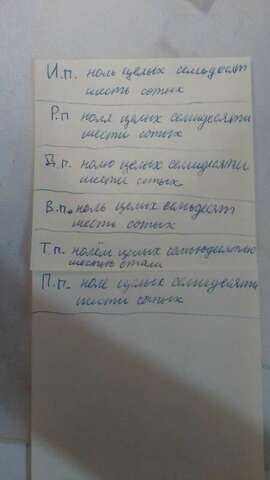 И.п. ноль целых семьдесят
шесть сотых
Р.п ноля целых семидесяти
шести сотых
Д.п. нолю целых семидесяти
шести сотых.
В.п. ноль целых семьдесят
шесть сотых
Т.п. нолём целых семьюдесятью
шестью
П.п. ноле целых семидесяти
шести сотых